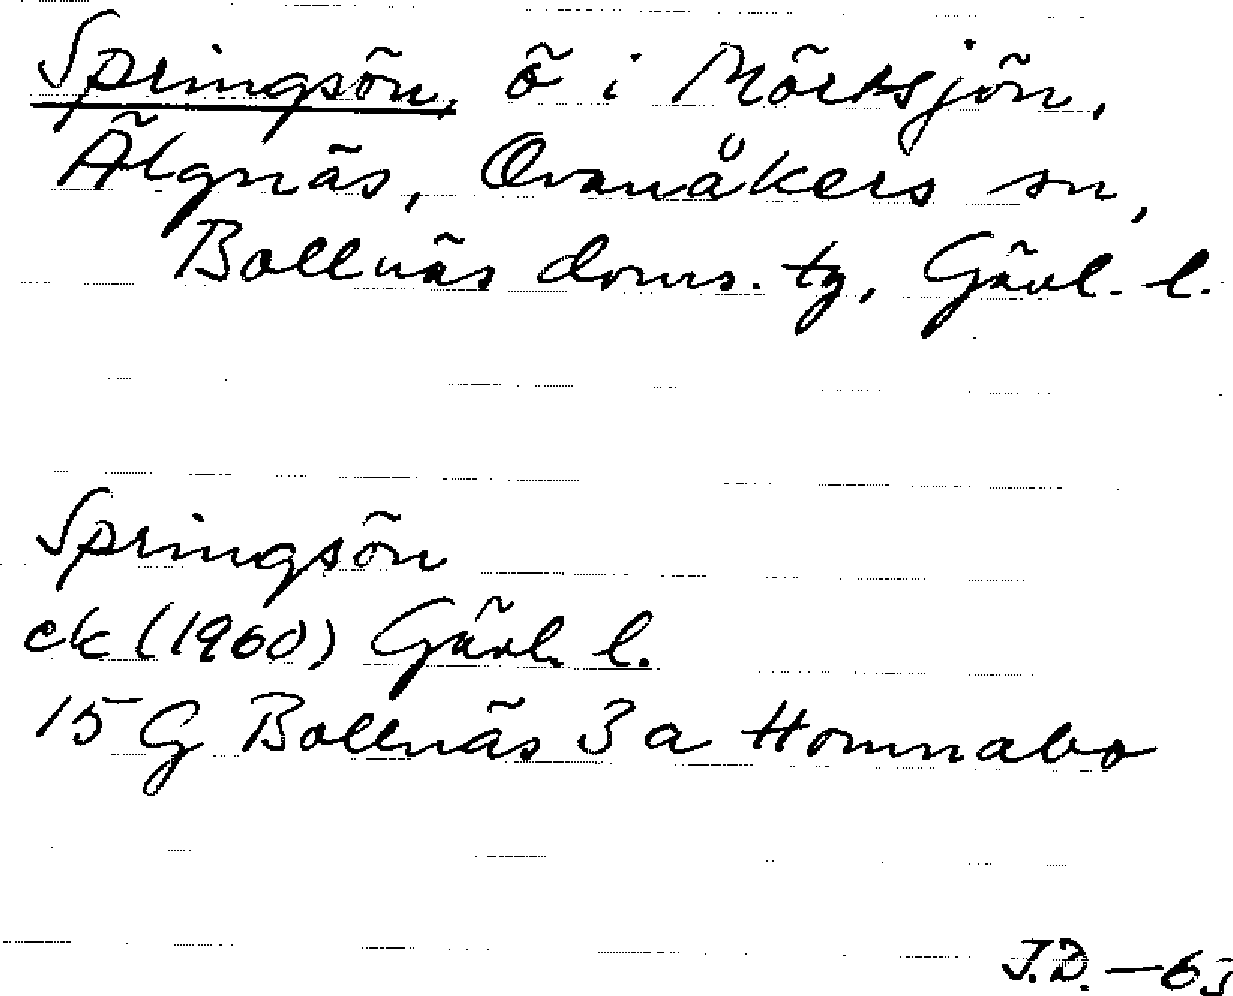 Springsön, ö i Mörksjön,
Älgnäs, Ovanåkers sn,
Bollnäs doms. tg, Gävl. l.
Springsön
ek (1960) Gävl. l.
15 G Bollnäs 3 a Homnabo
J.D. — 65